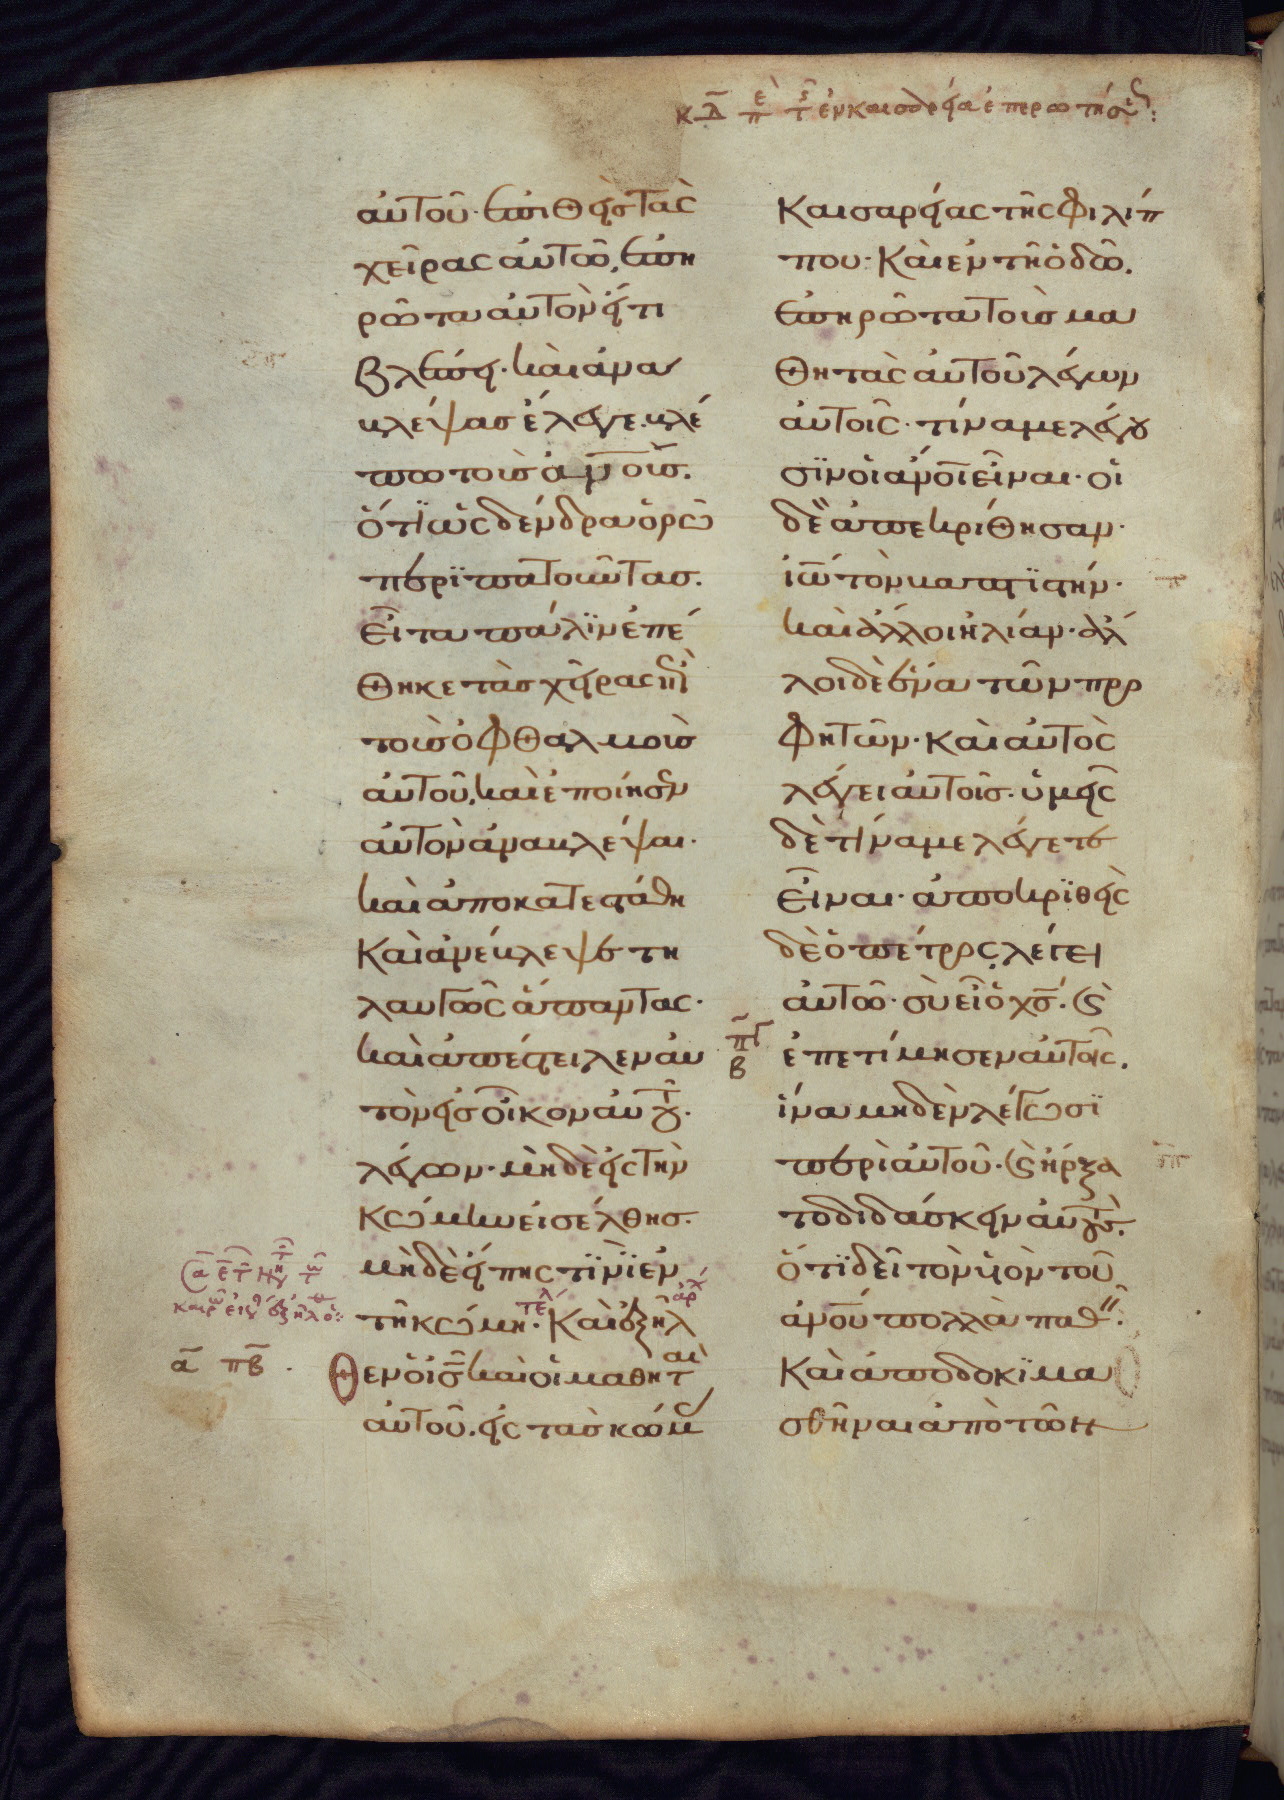 κδ πε τ ἐν καισαρεία ἐπερωτήσεως:
αὐτοῦ· ἐπιθεὶς τὰς
χεῖρας αὐτῶ, ἐπη
ρώτα αὐτὸν εἴ τι
βλέπει· καὶ ἀνα
βλέψας ἔλεγε· βλέ
πω τοὺς ἀνοῦς.
ὅτι ὡς δένδρα ὁρῶ
περιπατοῦντας.
Εἶτα πάλιν ἐπέ
θηκε τὰς χεῖρας ἐπὶ
τοὺς ὀφθαλμοὺς
αὐτοῦ, καὶ ἐποίησεν
αὐτὸν ἀναβλέψαι·
καὶ ἀποκατεστάθη
Καὶ ἀνέβλεψε τη
λαυγῶς ἅπαντας·
καὶ ἀπέστειλεν αὐ
τὸν εἰς οἶκον αὐτοῦ·
λέγων· μὴδὲ εἰς τὴν
κώμην εἰσέλθης.
μὴδὲ εἴπης τινὶ ἐν
τῆ κώμη· Καὶ ἐξῆλ
θεν ὁ ις καὶ οἱ μαθηταὶ
αὐτοῦ. εἰς τὰς κώμας
Καισαρείας τῆς Φιλίπ
που· Καὶ ἐν τῆ ὁδῶ.
ἐπηρώτα τοὺς μα
θητὰς αὐτοῦ λέγων
αὐτοῖς· τίνα με λέγου
σιν οἱ ανοι εἶναι· οἱ
δὲ ἀπεκρίθησαν·
ιω τὸν βαπτιστήν·
καὶ ἄλλοι ἠλίαν· ἄλ
λοι δὲ ἕνα τῶν προ
φητῶν· καὶ αὐτὸς
λέγει αὐτοῖς· ὑμεῖς
δὲ τίνα με λέγετε
εἶναι· ἀποκριθεὶς
δὲ ὁ πέτρος λέγει
αὐτῶ· σὺ εἶ ὁ χς. καὶ
ἐπετίμησεν αὐτοῖς.
ἵνα μηδενὶ λέγωσι
περὶ αὐτοῦ· καὶ ἤρξα
το διδάσκειν αὐτούς.
ὅτι δεῖ τὸν υἱὸν τοῦ
ανου πολλὰ παθεῖν·
Καὶ ἀποδοκιμα
σθῆναι ἀπὸ τῶν
πγ
β
τέλ
ἀρχ
α πβ